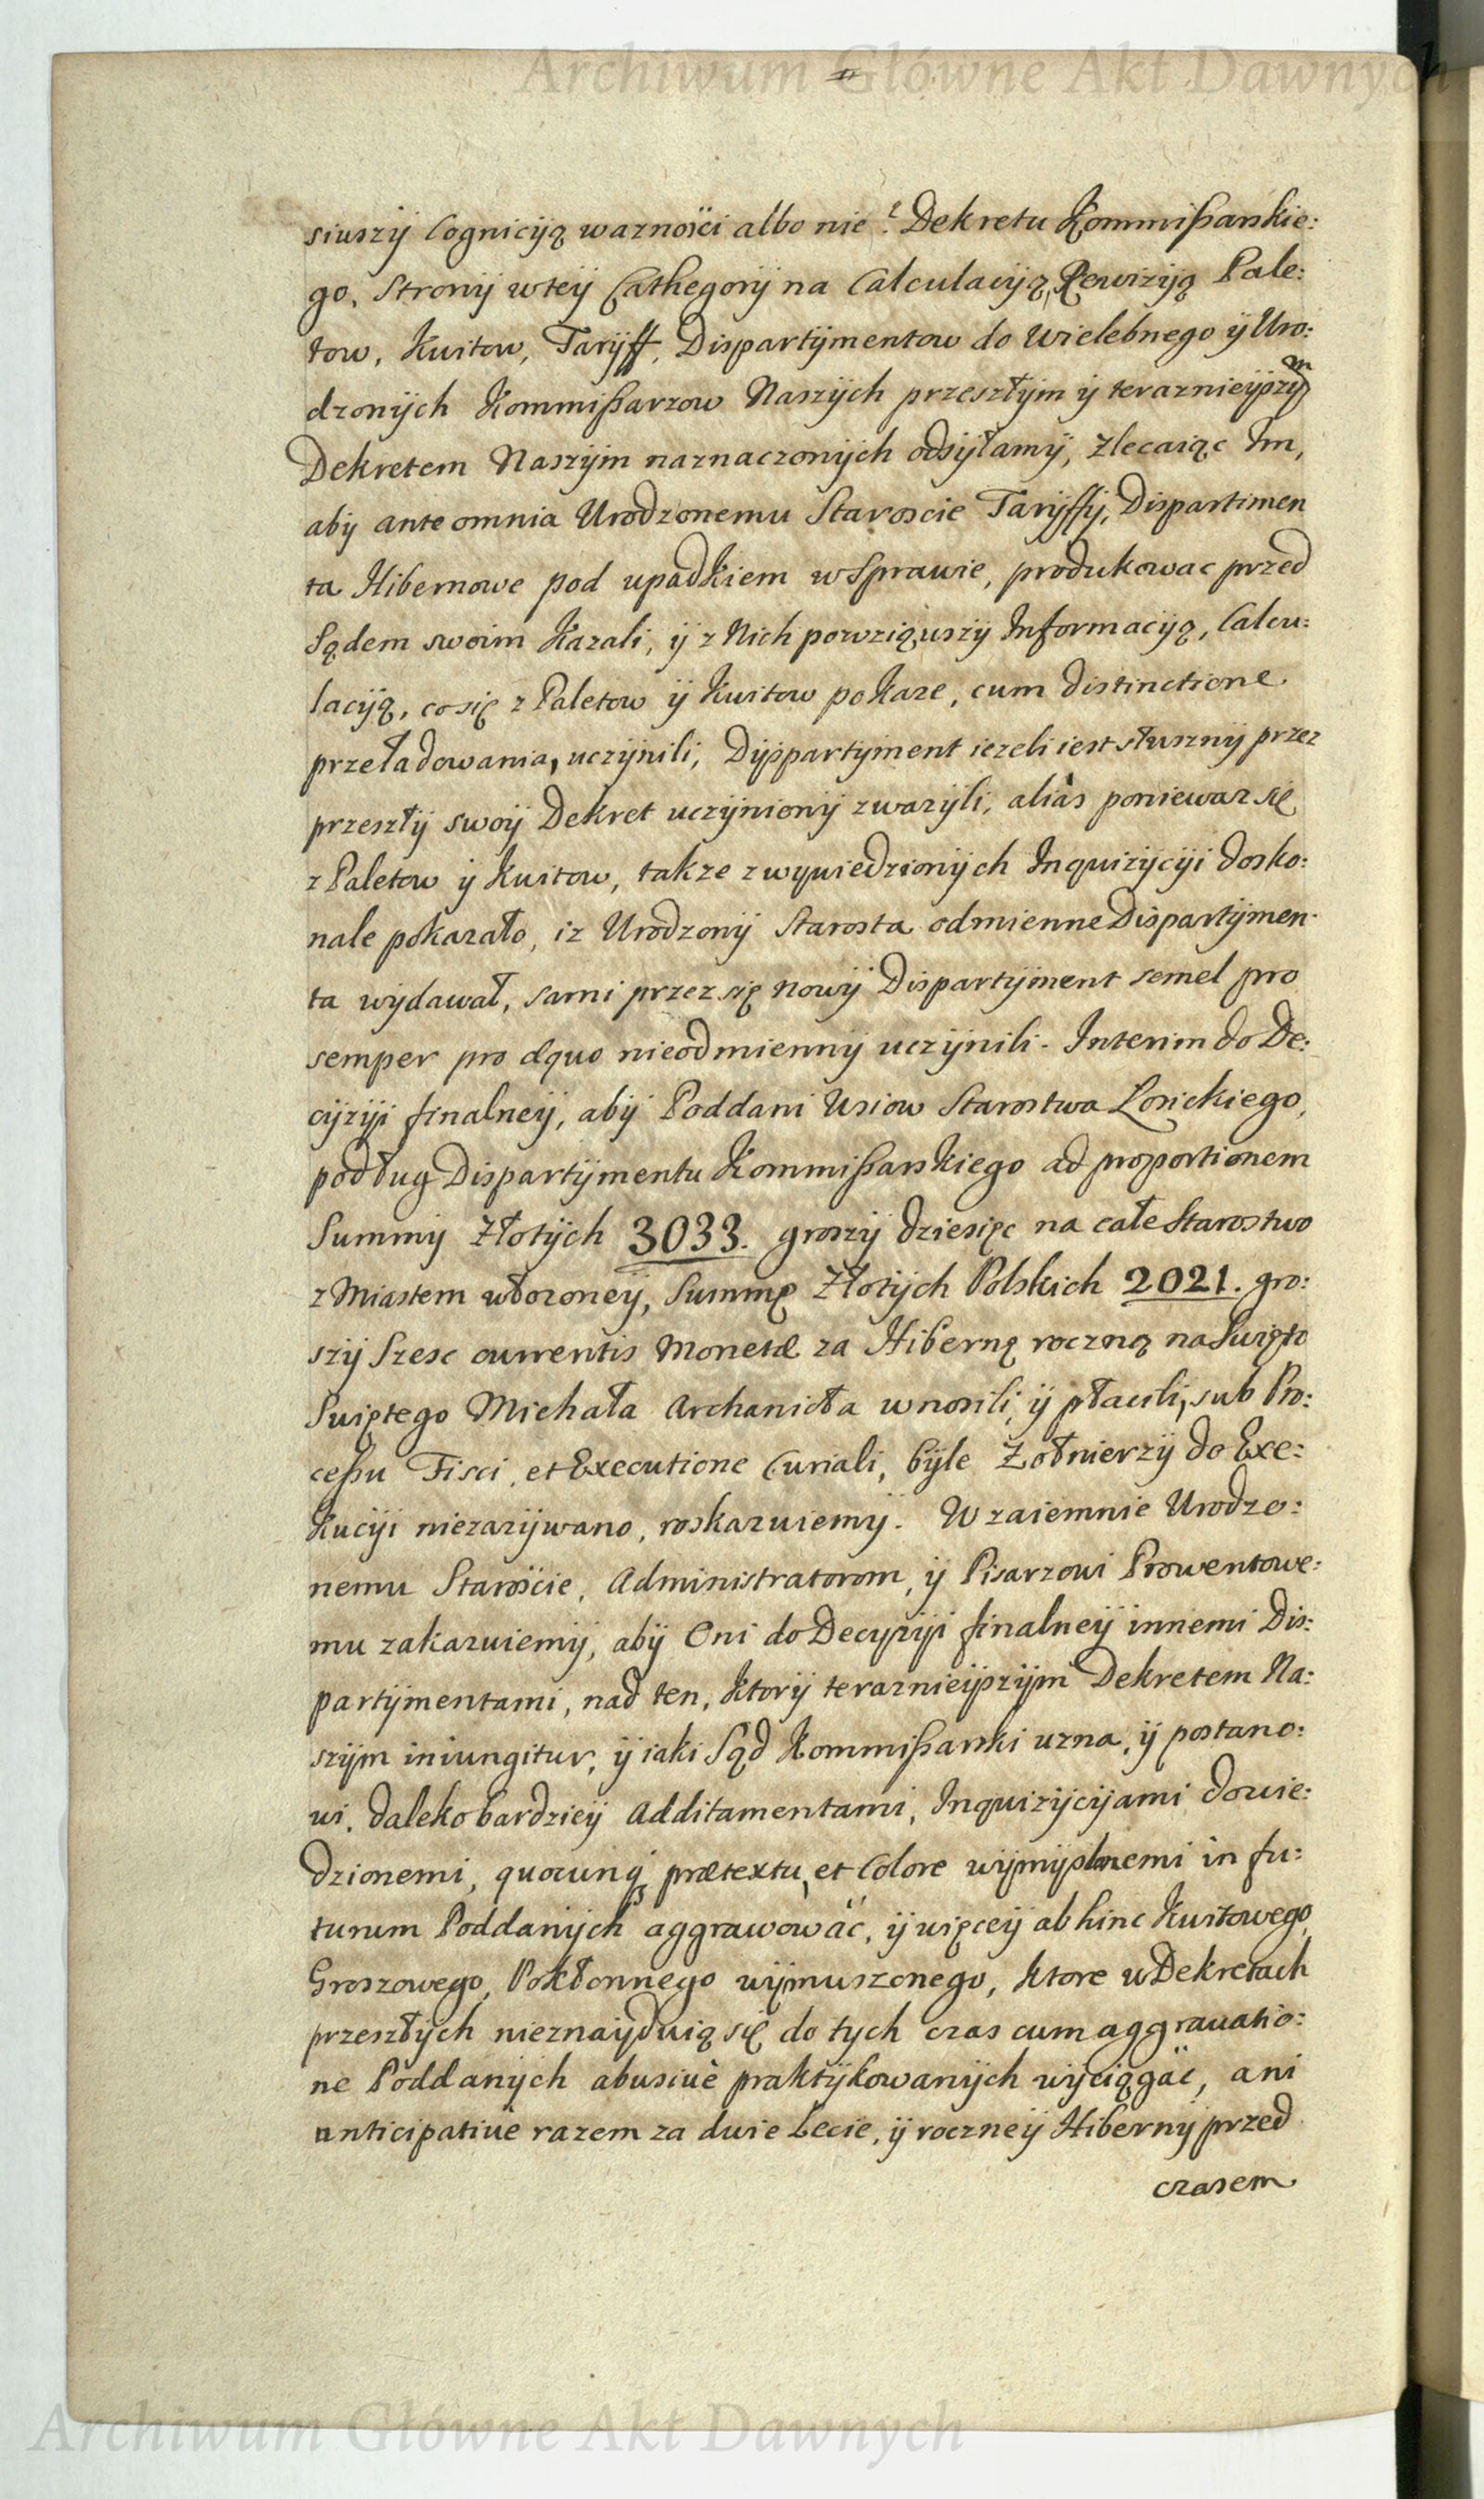 Archiwum Główne Akt Dawnych
siuszÿ Cognicÿą waznosci albo nie? Dekretu Kommißarskie:
go, Stronÿ wteÿ Cathegorÿ na Calculacÿą, Rewizÿą Pale:
tow, Kwitow, Tarÿff, Dispartÿmentow do Wielebnego ÿ Uro:
dzonÿch Kommißarzow Naszÿch przeszłÿm ÿ teraznieÿszÿm
Dekretem Naszÿm naznaczonÿch odsÿłamÿ, zlecaiąc Im,
abÿ ante omnia Urodzonemu Staroscie Tarÿffÿ, Dispartimen
ta Hibernowe pod upadkiem wSprawie, produkowac przed
Sądem swoim Kazali, ÿ z Nich powziąwszÿ Informacÿą, Calcu:
lacÿą, cosię z Paletow ÿ Kwitow pokaze, cum distinctione
przeładowania, uczÿnili, Dÿspartÿment iezeli iest słusznÿ przez
przeszłÿ swoÿ Dekret uczÿnionÿ zwazÿli, aliàs poniewaz się
z Paletow ÿ Kwitow, takze z wywiedzionÿch Inquizÿcÿi dosko:
nale pokazało, iz Urodzonÿ Starosta odmienne Dispartÿmen
ta wÿdawał, sami przez się nowÿ Dispartÿment semel pro
semper pro æquo nieodmiennÿ uczÿnili. Interim do De:
cÿzÿi finalneÿ, abÿ Poddani Wsiow Starostwa Losickiego,
podług Dispartÿmentu Kommißarskiego ad proportionem
Summÿ Złotÿch 3033. groszÿ dziesięc na całe Starostwo
z Miastem włozoneÿ, Summę Złotÿch Polskich 2021. gro:
szÿ Szesc currentis Monetæ za Hibernę roczną na Swięto
Swiętego Michała Archanioła wnosili ÿ płacili, sub Pro:
ceßu Fisci, et Executione Curiali, bÿle Zołnierzÿ do Exe:
kucÿi niezazÿwano, roskazuiemÿ. Wzaiemnie Urodzo:
nemu Staroście, Administratorom, ÿ Pisarzowi Prowentowe:
mu zakazuiemÿ, abÿ Oni do Decyzÿi finalneÿ innemi Dis:
partÿmentami, nad ten, ktorÿ teraznieÿszÿm Dekretem Na:
szÿm iniungitur, ÿ iaki Sąd Kommißarski uzna, ÿ postano:
wi, daleko bardzieÿ Additamentami, Inquizÿcÿami dowie:
dzionemi, quocunq prætextu, et Colore wÿmÿslnemi in fu:
turum Poddanÿch aggrawować, ÿ więceÿ ab hinc Kwitowego,
Groszowego, Pokłonnego wÿmuszonego, ktore w Dekretach
przeszłÿch nieznaÿduią się do tych czas cum aggrauatio:
ne Poddanÿch abusiuè praktÿkowanÿch wÿciągać, ani
anticipatiue razem za dwie Lecie, ÿ roczneÿ Hibernÿ przed
czasem
Archiwum Główne Akt Dawnych